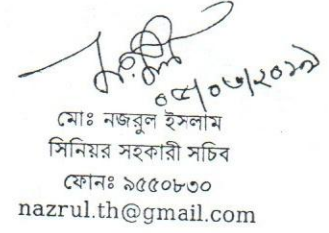 মোঃ নজরুল ইসলাম
সিনিয়র সহকারী সচিব
ফোনঃ ৯৫৫০৮৩০
nazrul.th@gmail.com